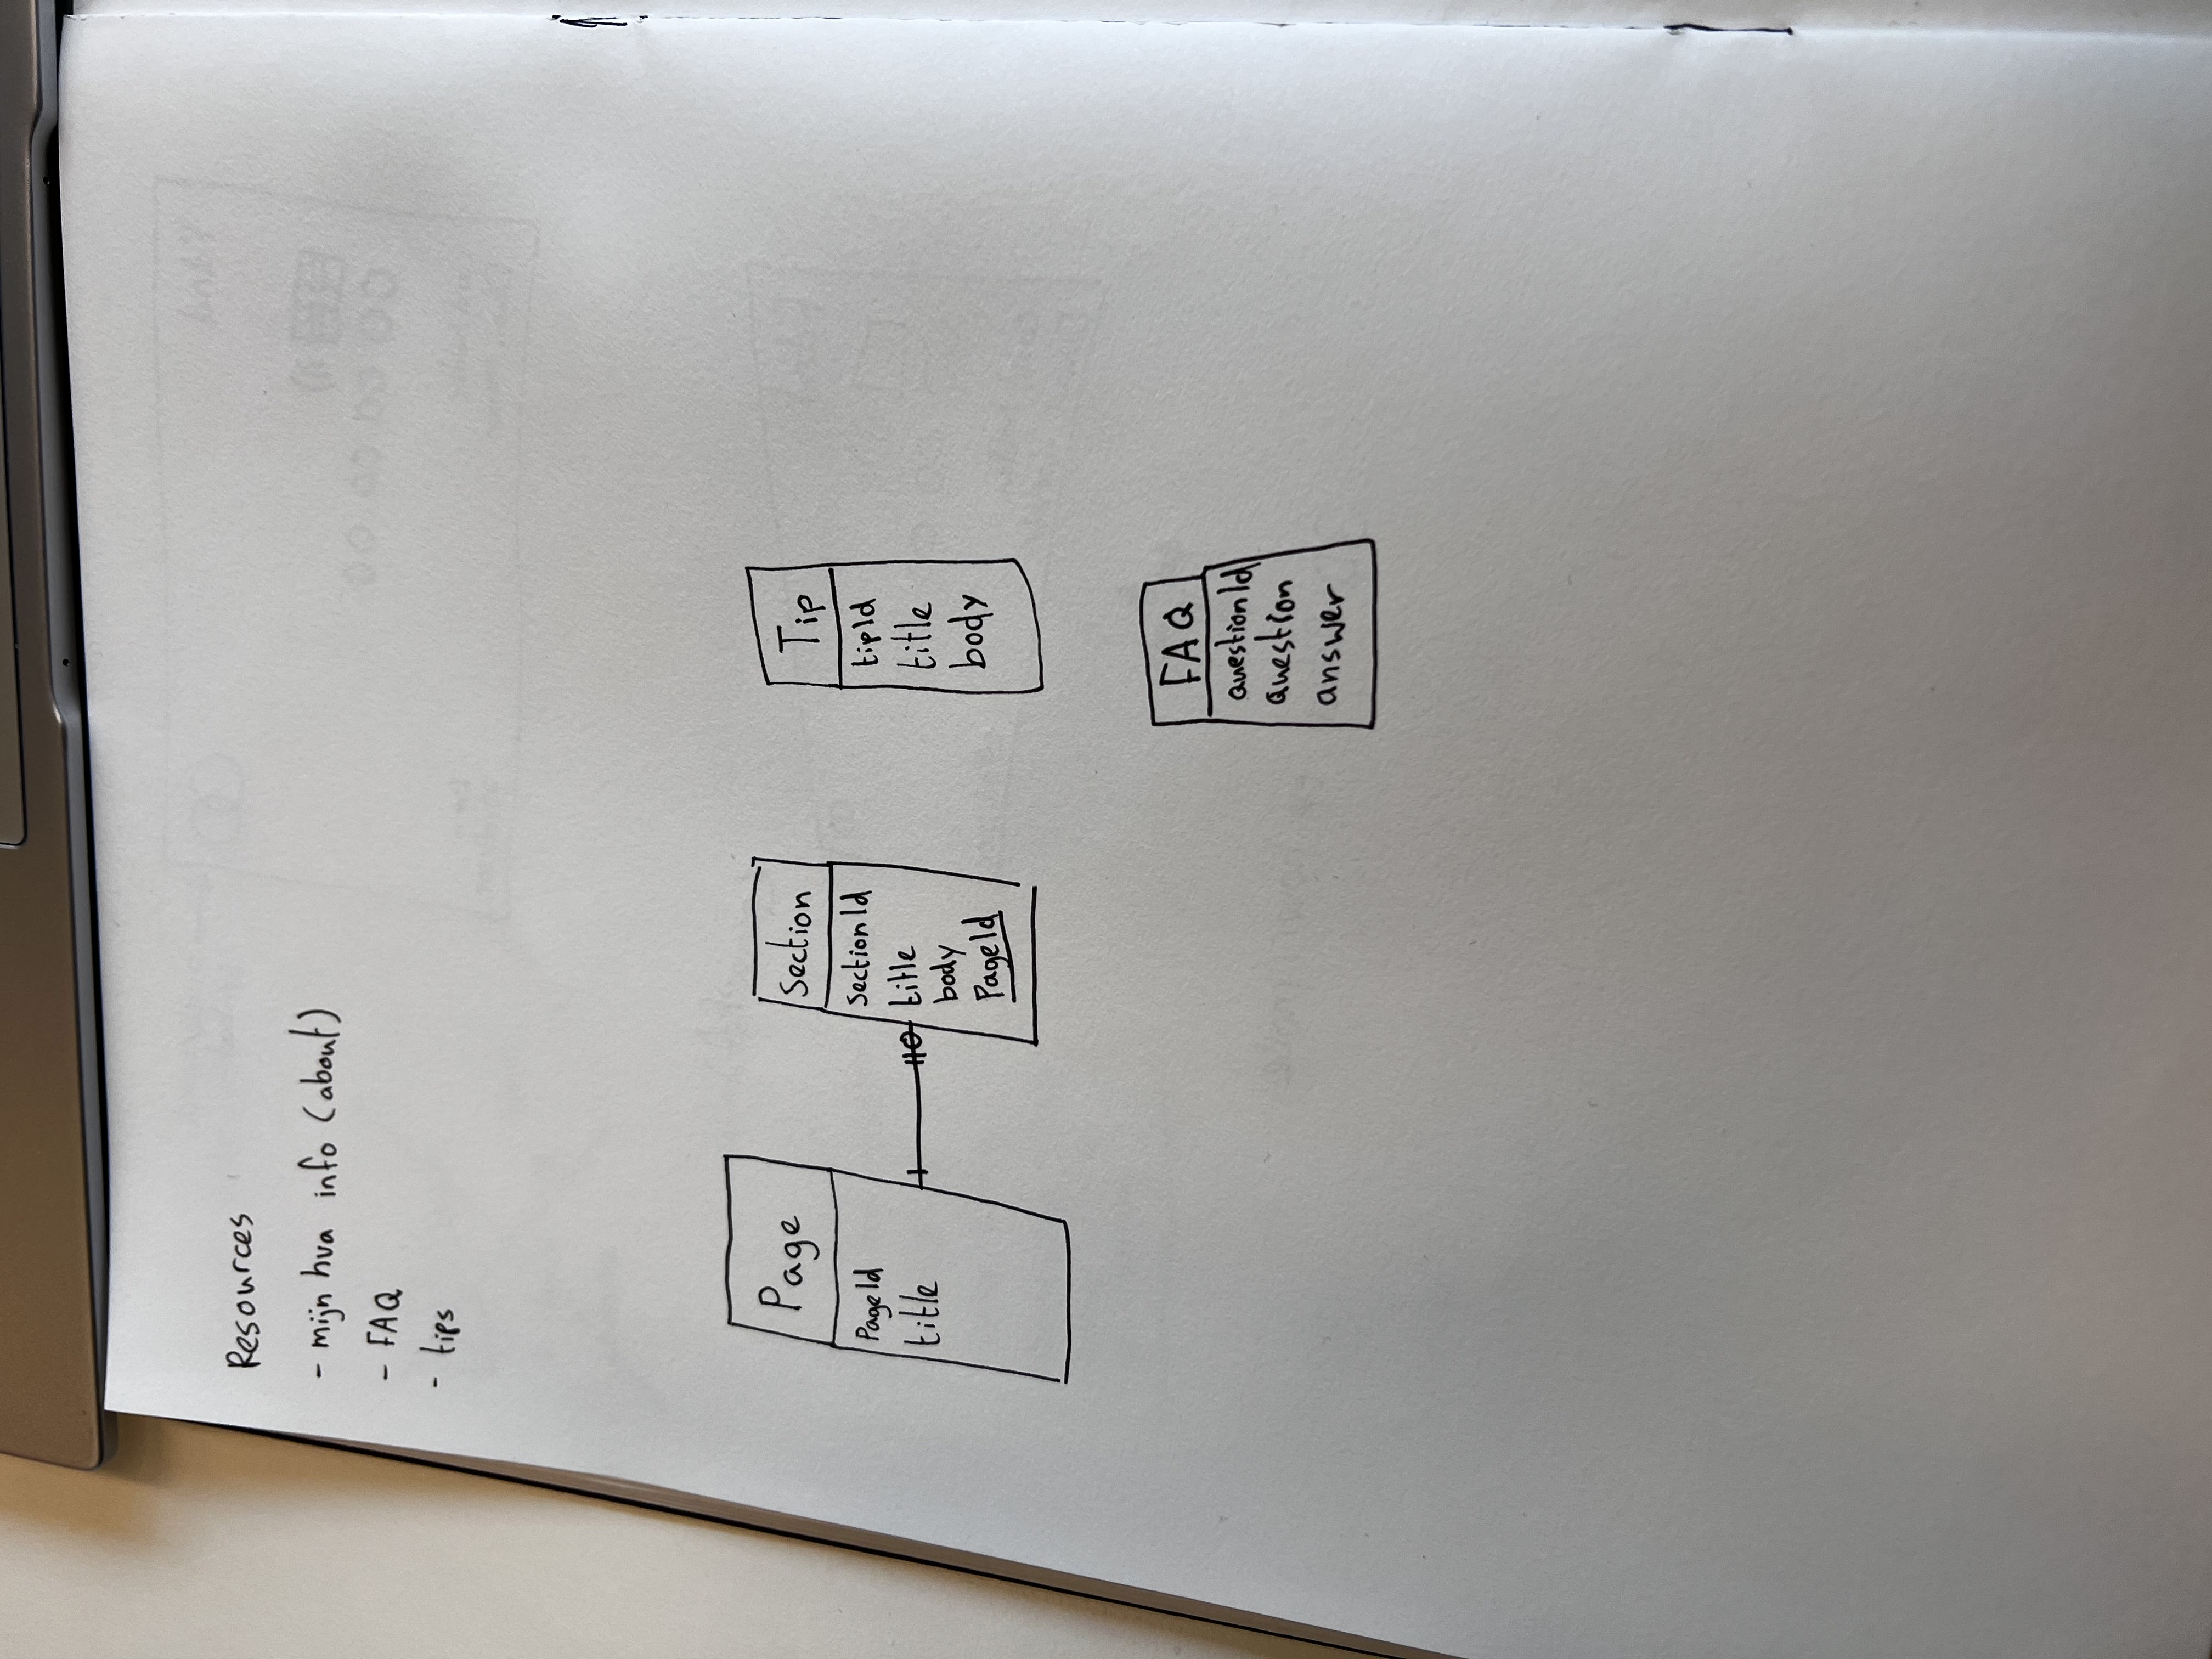 Resources
- mijn hva info (about)
- FAQ
- tips
Page
PageId
title
Section
SectionId
title
body
PageId
Tip
tipId
title
body
FAQ
questionId
question
answer